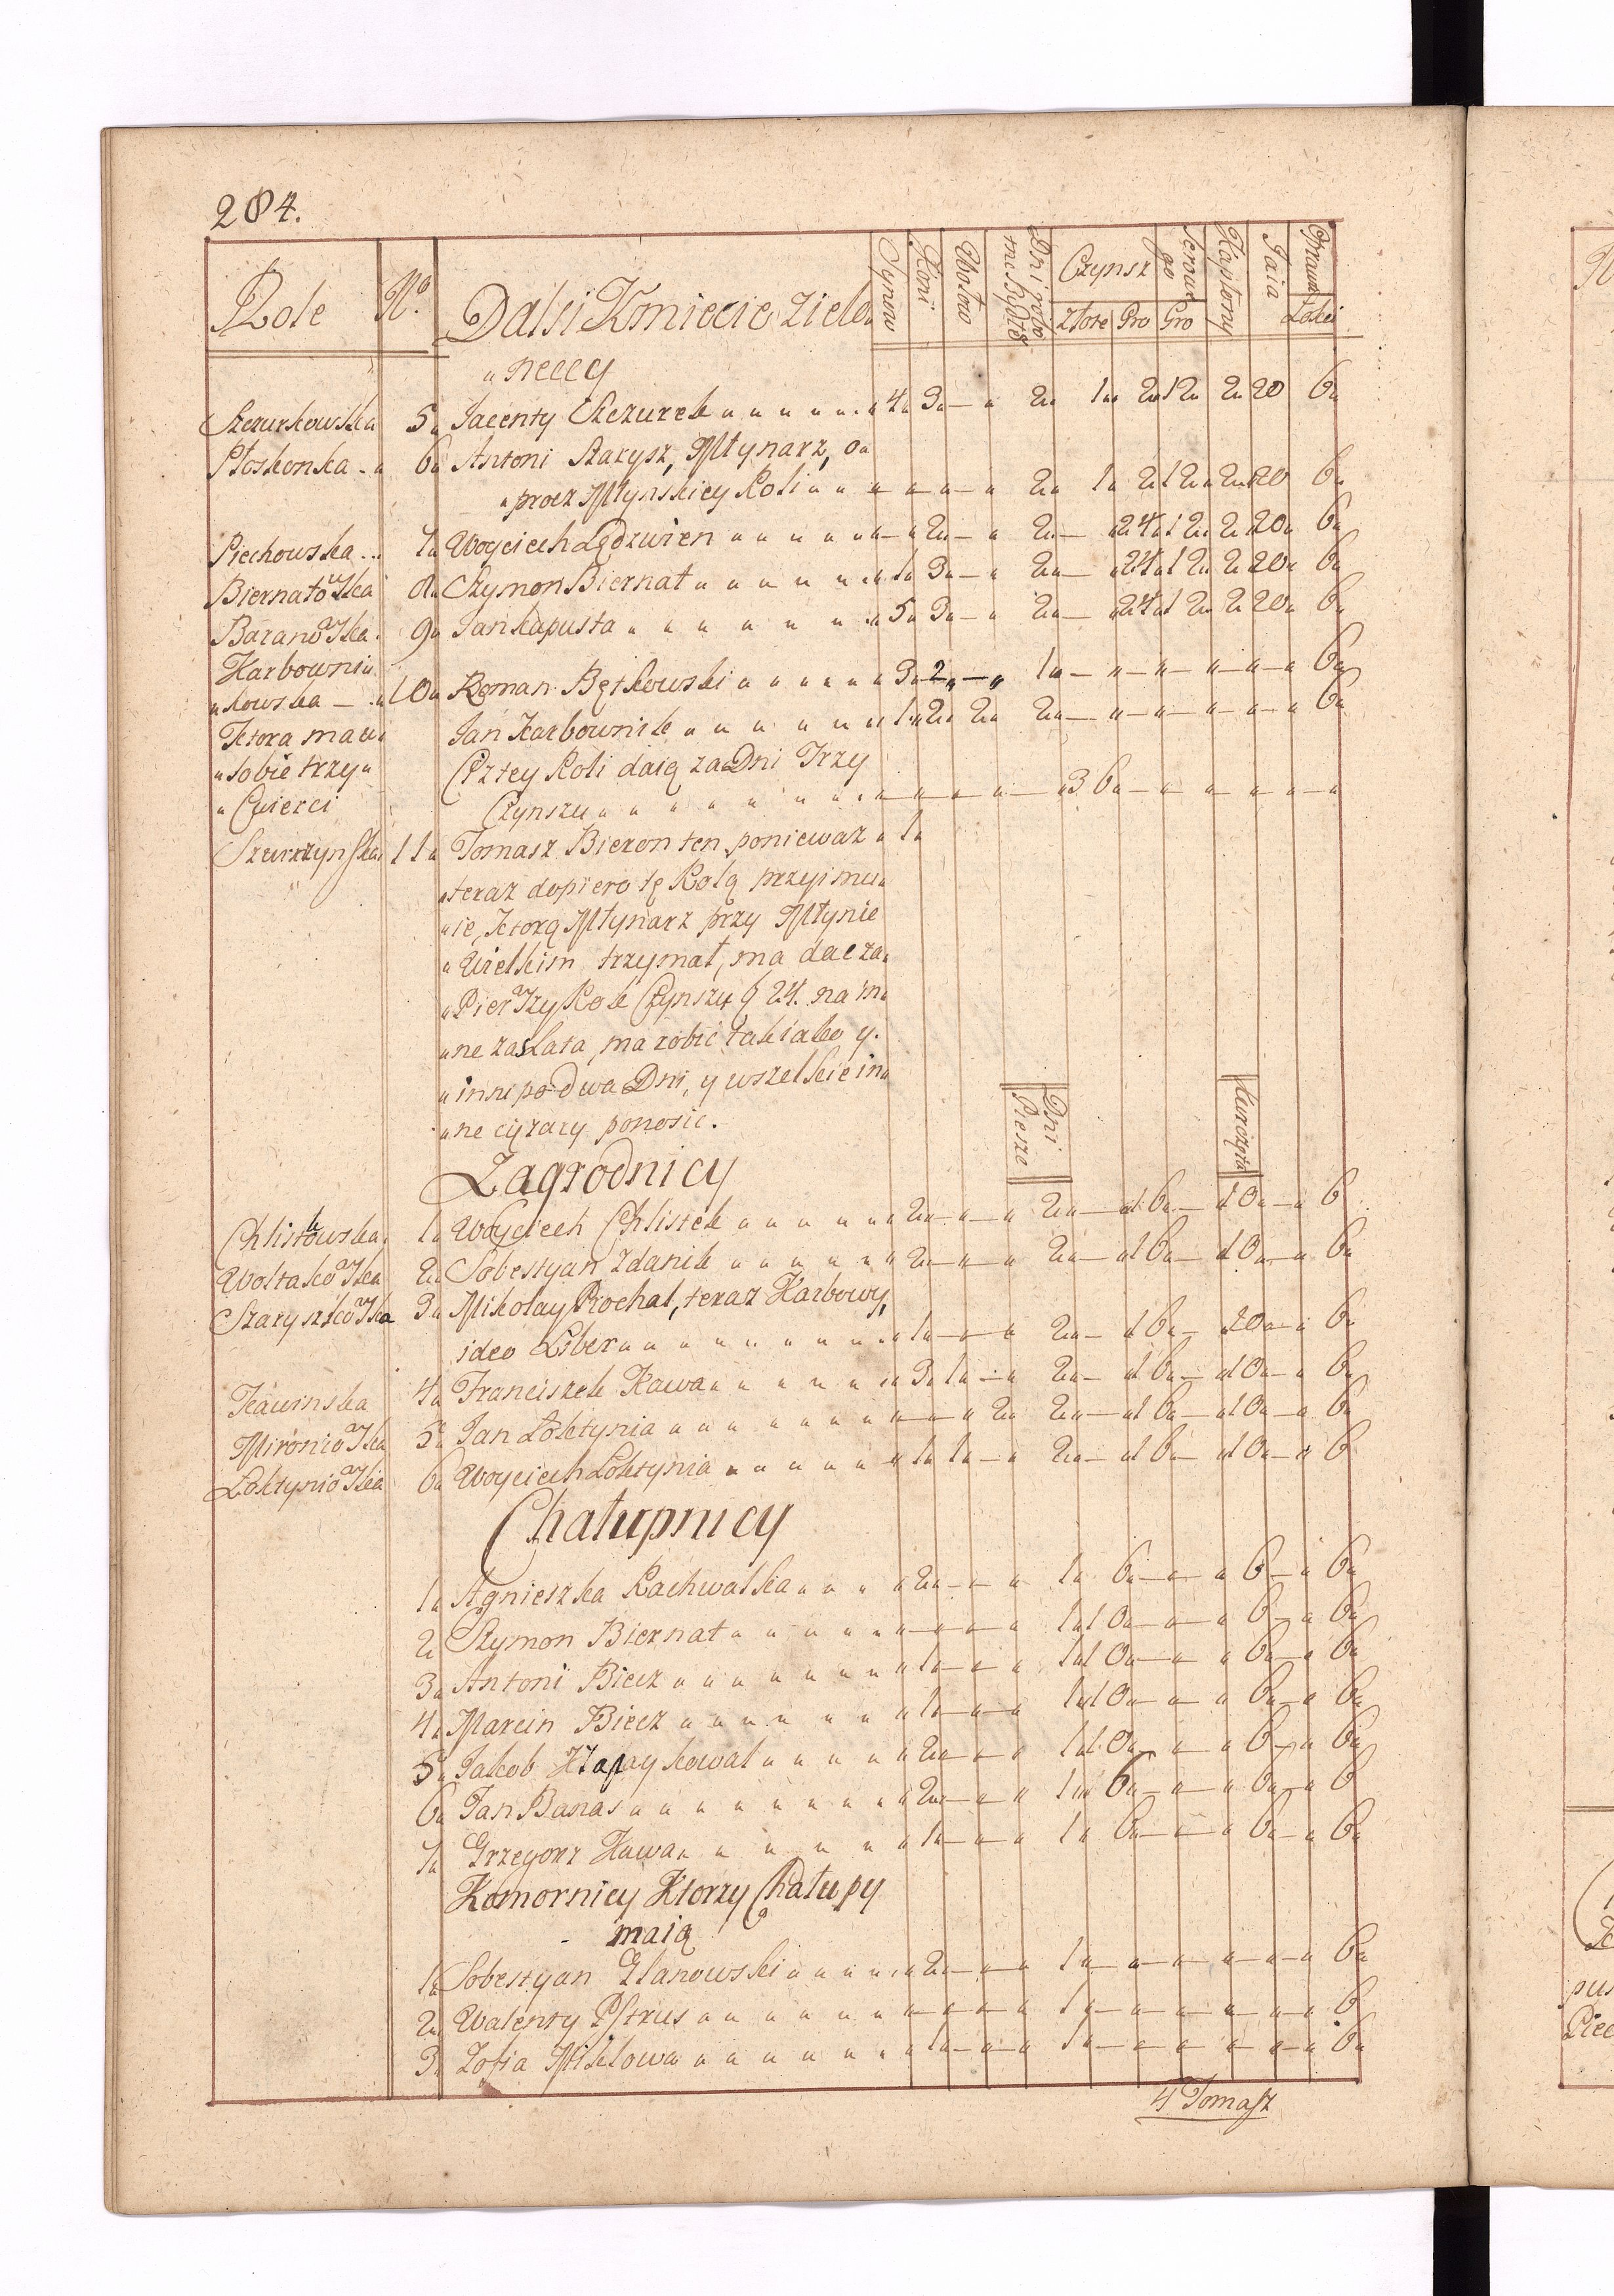 284.
Role No. Dalsi Kmiecie ziele„ Synow Koni Wołow Dni robo Czynsz Serow Kapłony Jaia Oprawa
go
Złote Gro Gro Łokci
„neccy
Szczurkowska 5„ Jacenty Szczurek „ „ „ „ „ „ 4„ 3„ — „ 2„ 1„ 2„ 12„ 2„ 20 6„
Płoskonka - „ 6„ Antoni Starysz, Młynarz, o„
„procz Młynskiey Roli „ „ „ „ — „ 2„ 1„ 2„ 12„ 2„ 20 6„
Piechowska .. 7„ Woyciech Lędzwien „ „ „ „ „ — „ 2„ — „ 2„ — „24„ 12„ 2„ 20„ 6„
Biernato Ska 8„ Szymon Biernat „ „ „ „ „ „ 1„ 3„ — „ 2„ — „24„ 12„ 2„ 20„ 6„
Barano Ska 9„ Jan Kapusta „ „ „ „ „ „ 5„ 3„ — „ 2„ — „24„ 12„ 2„ 20„ 6„
Karbowni„
„kowska — .„ 10„ Roman Bętkowski „ „ „ „ „ 3„ 2„ — „ 1„ — „ — „ — „ — „ — „ 6„
Ktora ma w„ Jan Karbownik „ „ „ „ „ „ 1„ 2„ 2„ 2„ — „ — „ — „ — „ — „ 6„
„sobie trzy„ Cztey Roli daią za Dni Trzy
„Cwierci Czynszu „ „ „ „ „ „ „ „ — „ — „ — 3 6„ — „ — „ — „ — „
Szurzynska 11„ Tomasz Bieron ten poniewaz „ 1„
„teraz dopiero tę Rolą przyimu„
„ie, Ktorą Młynarz przy Młynie
„Wielkim trzymał, ma dac za„
„Pier Szy Rok Czynszu f 24. na in„
„ne zas Lata, ma robic tak iako y.
„inni po dwa Dni, y wszelkie in„
„ne cięzary ponosic.
Dni Piesze Kurczęta
Zagrodnicy
Chlistowska 1„ Woyciech Chlistek „ „ „ „ „ „ 2„ — „ — „ 2„ — „ 16„ — „10„ — „ 6
Woltako Ska 2„ Sobestyan Zdanik „ „ „ „ „ „ 2„ — „ — „ 2„ — „ 16„ — „10„ — „ 6„
Staryszko Ska 3„ Mikołay Prochal, teraz Karbowy,
ideo Liber „ „ „ „ „ „ „ „ 1„ — „ — „ 2„ — „ 16„ — „10„ — „ 6„
Kawinska 4„ Franciszek Kawa „ „ „ „ „ „ 3„ 1„ — „ 2„ — „ 16„ — „10„ — „ 6„
Mironio Ska 5„ Jan Loktynia „ „ „ „ „ „ „ — „ — „ 2„ 2„ — „ 16„ — „10„ — „ 6„
Loktynio Ska 6„ Woyciech Loktynia „ „ „ „ „ „ 1„ 1„ — „ 2„ — „ 16„ — „10„ — „ 6
Chałupnicy
1„ Agnieszka Rachwalska „ „ „ „ 2„ — „ — „ 1„ 6„ — „ — „ 6 — „ 6„
2„ Szymon Biernat „ „ „ „ „ „ — „ — „ — „ 1„ 10„ — „ — „ 6 — „ 6„
3„ Antoni Biecz „ „ „ „ „ „ „ 1„ — „ — „ 1„ 10„ — „ — „ 6„ — „ 6„
4„ Marcin Biecz „ „ „ „ „ „ „ 1„ — „ — „ 1„ 10„ — „ — „ 6„ — „ 6„
5„ Jakob Kłapaykowal „ „ „ „ „ 2„ — „ — „ 1„ 10„ — „ — „ 6 — „ 6„
6„ Jan Banas „ „ „ „ „ „ „ „ 2„ — „ — „ 1„ 6„ — „ — „ 6„ — „ 6
7„ Grzegorz Kawa „ „ „ „ „ „ 1„ — „ — „ 1„ 6„ — „ — „ 6„ — „ 6„
Komornicy Ktorzy Chałupy
maią
1„ Sobestyan Glanowski „ „ „ „ „ 2„ — „ — „ 1„ — „ — „ — „ — „ — „ 6„
2„ Walenty Pstrus „ „ „ „ „ „ „ — „ — „ — „ 1„ — „ — „ — „ — „ — „ 6
3„ Zofia Miklowa „ „ „ „ „ „ „ 1„ — „ — „ 1„ — „ — „ — „ — „ — „ 6„
4 Tomasz